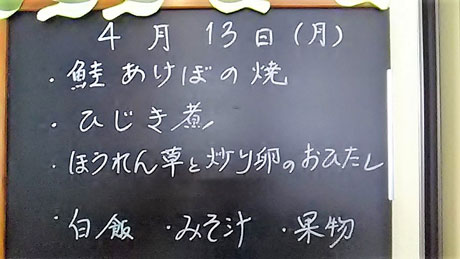 4月13日(月)
・鮭あけぼの焼
・ひじき煮
・ほうれん草と炒り卵のおひたし
・白飯 ・みそ汁 ・果物